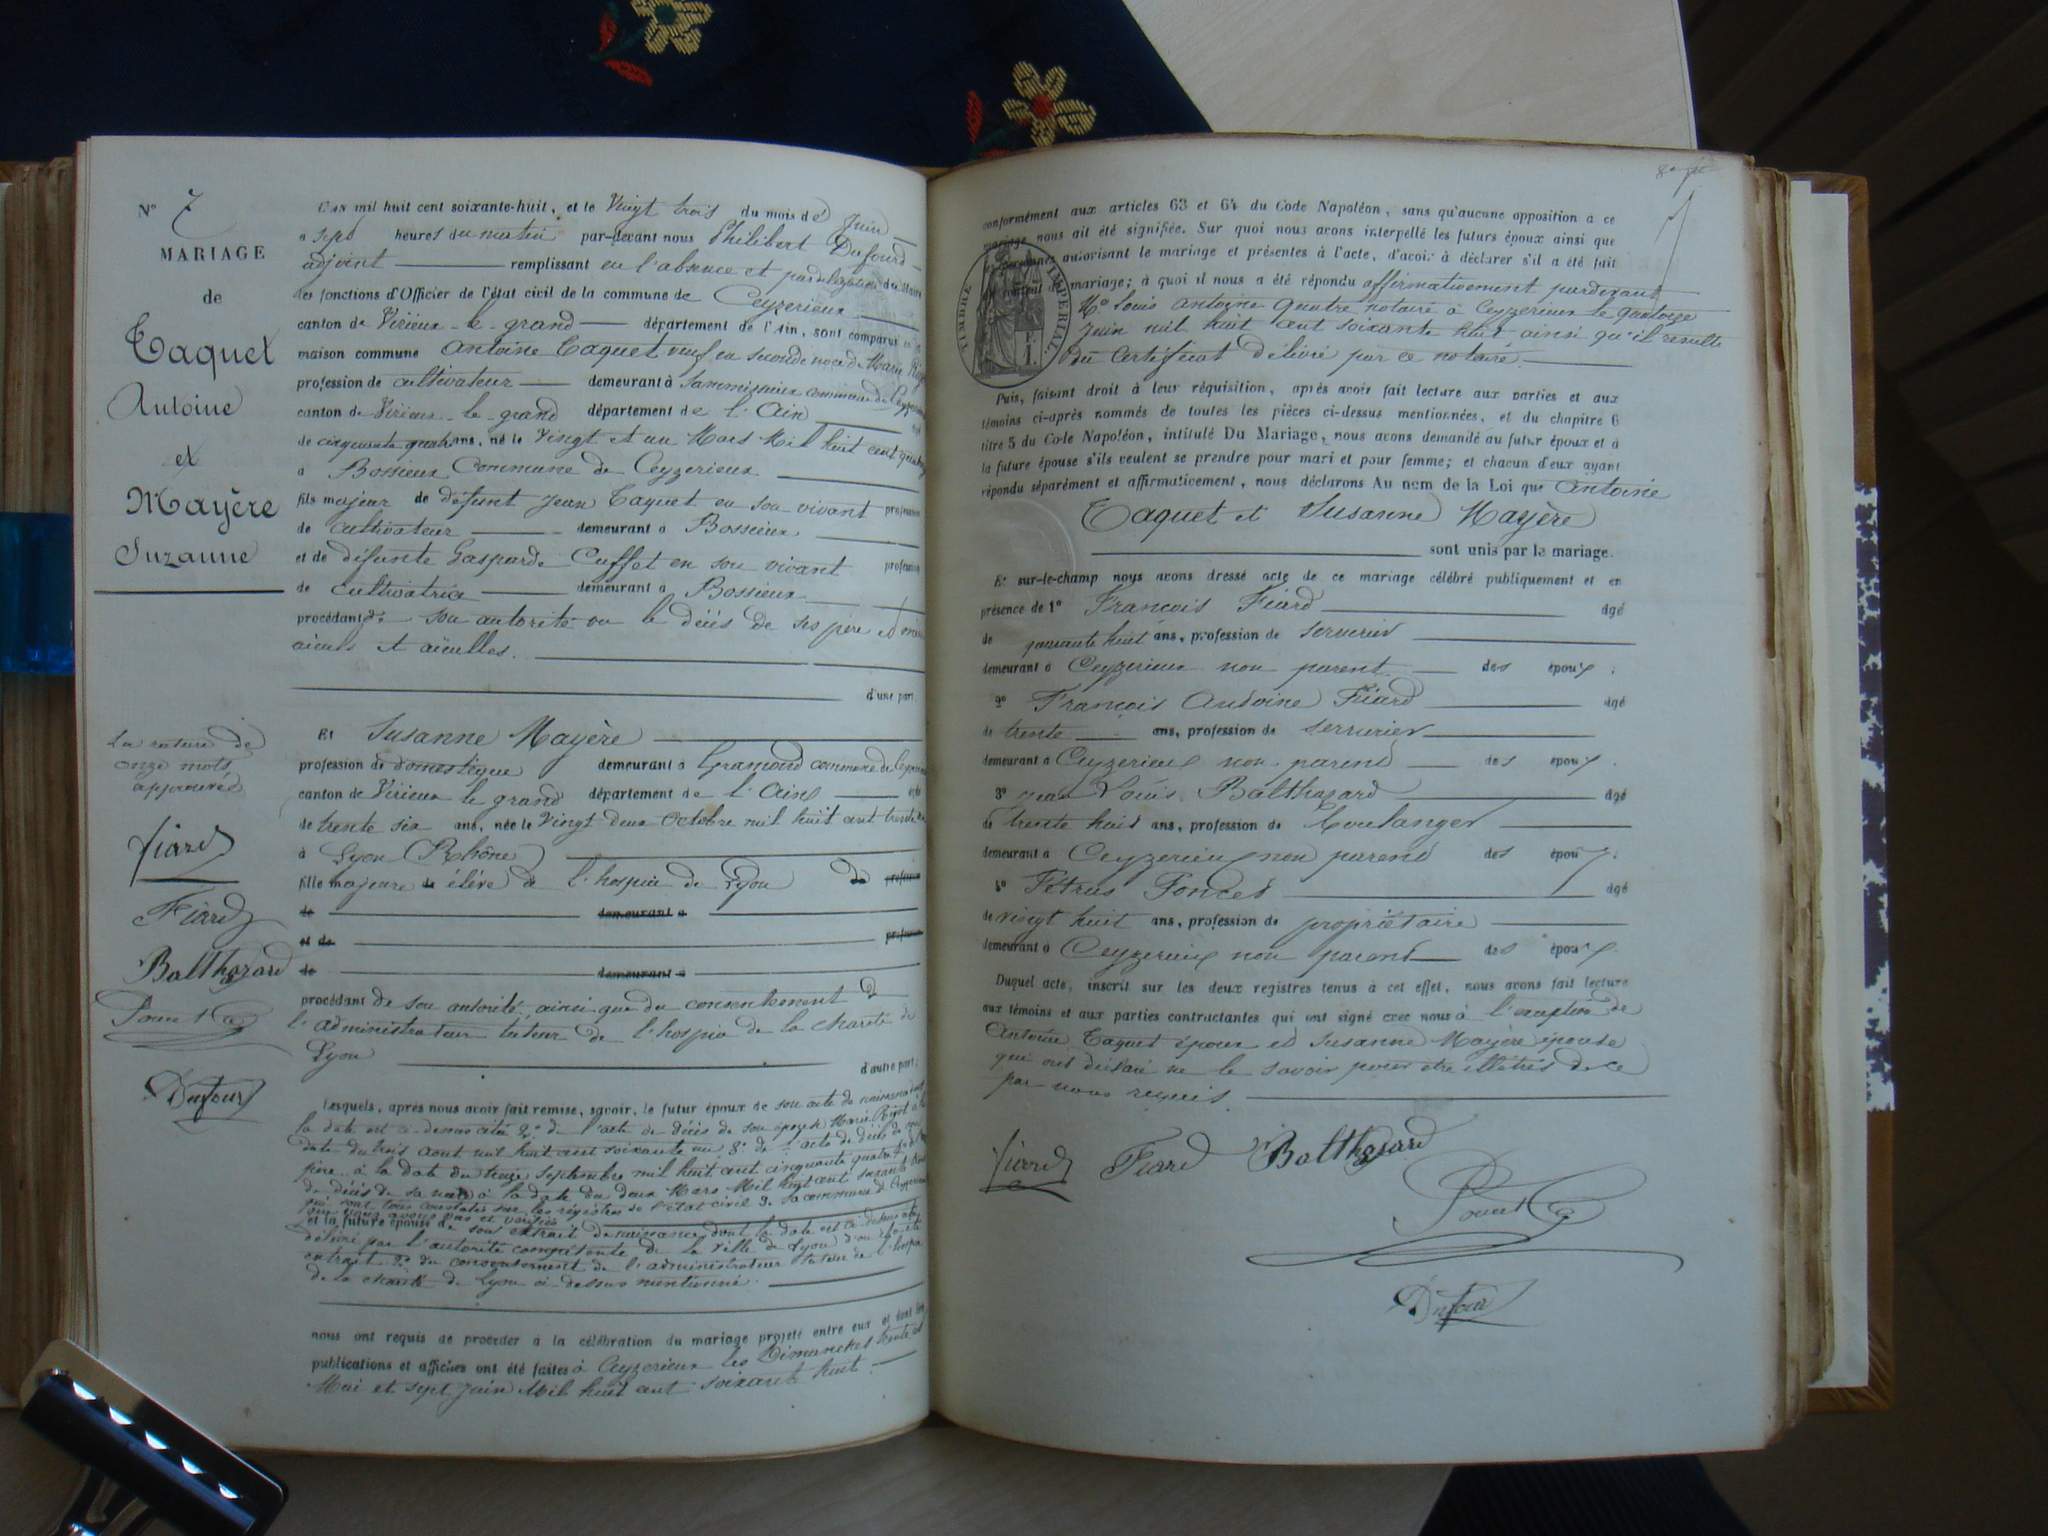 N° 7
MARIAGE
de
Taquet
Antoine
et
Mayère
Suzanne
La rature de
onze mots
approuvée
Fiard
Fiard
Balthazard
Poncet
Dufour
L'AN mil huit cent soixante-huit, et le Vingt trois du mois de Juin
a sept heures du matin par-devant nous Philibert Dufour
adjoint remplissant en l'absence et par délégation du Maire
les fonctions d'Officier de l'état civil de la commune de Ceyzerieux
canton de Virieux-le-grand département de l'Ain, sont comparus en la
maison commune Antoine Taquet veuf en seconde noce de Marie
profession de cultivateur demeurant à commune de Ceyzerieux
canton de Virieux-le-grand département de l'Ain
de cinquante quatre ans, né le Vingt et un Mars Mil huit cent quatorze
a Bossieux Commune de Ceyzerieux
fils majeur de défunt Jean Taquet en son vivant profession
de cultivateur demeurant à Bossieux
et de défunte Gasparde Cuffet en son vivant profession
de cultivatrice demeurant à Bossieux
procédant de son autorité vu le décès de ses père et mère
aieuls et aieulles.
d'une part.
Et Susanne Mayère
profession de domestique demeurant à Gramond commune de Ceyzerieux
canton de Virieux le grand département de l'Ain
de trente six ans, née le Vingt deux Octobre mil huit cent trente
à Lyon (Rhône)
fille majeure de élève de l'hospice de Lyon de profession
de demeurant a
et de profession
de demeurant a
procédant de son autorité, ainsi que du consentement de
l'administrateur tuteur de l'hospice de la charité de
Lyon
d'autre part;
Lesquels, après nous avoir fait remise, savoir, le futur époux de son acte de naissance dont
la date est ci dessus citée 2° de l'acte de décès de son épouse Marie à la
date du trois aout mil huit cent soixante un 3° de l'acte de décès de son
père à la date du treize septembre mil huit cent cinquante quatre
de décès de sa mère à la date du deux Mars Mil huit cent soixante
qui sont tous constatés sur les registres de l'état civil de la commune de Ceyzerieux
que nous avons vus et vérifiés
et la future épouse de son extrait de naissance dont la date est ci dessus
délivré par l'autorité compétente de la ville de Lyon
extrait 2° du consentement de l'administrateur tuteur de l'hospice
de la charité de Lyon ci-dessus mentionné.
nous ont requis de procéder a la célébration du mariage projeté entre eux et dont les
publications et affiches ont été faites à Ceyzerieux les Dimanches trente et
Mai et sept Juin Mil huit cent soixante huit
conformément aux articles 63 et 64 du Code Napoléon, sans qu'aucune opposition à ce
mariage nous ait été signifiée. Sur quoi nous avons interpellé les futurs époux ainsi que
les personnes autorisant le mariage et présentes à l'acte, d'avoir à déclarer s'il a été fait
mariage; à quoi il nous a été répondu affirmativement pardevant
Me Louis Antoine Quatre notaire à Ceyzerieux le quatorze
Juin mil huit cent soixante huit, ainsi qu'il résulte
du Certificat délivré par ce notaire.
TIMBRE IMPÉRIAL.
Puis, faisant droit à leur réquisition, après avoir fait lecture aux parties et aux
témoins ci-après nommés de toutes les pièces ci-dessus mentionnées, et du chapitre 6
titre 5 du Code Napoléon, intitulé Du Mariage, nous avons demandé au futur époux et à
la future épouse s'ils veulent se prendre pour mari et pour femme; et chacun d'eux ayant
répondu séparément et affirmativement, nous déclarons Au nom de la Loi que Antoine
Taquet et Susanne Mayère
sont unis par le mariage.
Et sur-le-champ nous avons dressé acte de ce mariage célébré publiquement et en
présence de 1° François Fiard âgé
de quarante huit ans, profession de serrurier
demeurant à Ceyzerieux non parent des époux;
2° François Antoine Fiard âgé
de trente ans, profession de serrurier
demeurant à Ceyzerieux non parent des époux.
3° Jean Louis Balthazard âgé
de trente huit ans, profession de boulanger
demeurant à Ceyzerieux non parent des époux;
4° Pétrus Poncet âgé
de vingt huit ans, profession de propriétaire
demeurant à Ceyzerieux non parent des époux.
Duquel acte, inscrit sur les deux registres tenus à cet effet, nous avons fait lecture
aux témoins et aux parties contractantes qui ont signé avec nous à l'exception de
Antoine Taquet époux et Susanne Mayère épouse
qui ont déclaré ne le savoir pour être illétrés de ce
par nous requis.
Fiard Fiard Balthazard
Poncet
Dufour